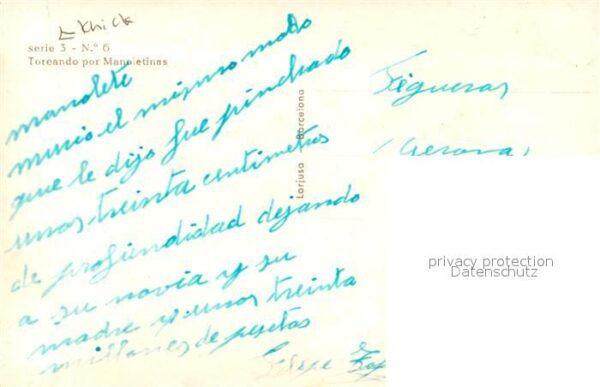 serie 3 - N.º 6
Toreando por Manoletinas
manolete
murio el mismo modo
que le dijo fue pinchado
unos treinta centimetros
de profiendidad dejando
a su novia y su
madre y unos treinta
millones de pesetas
Felipe
Larjusa Barcelona
Figueras
(Gerona)
privacy protection
Datenschutz